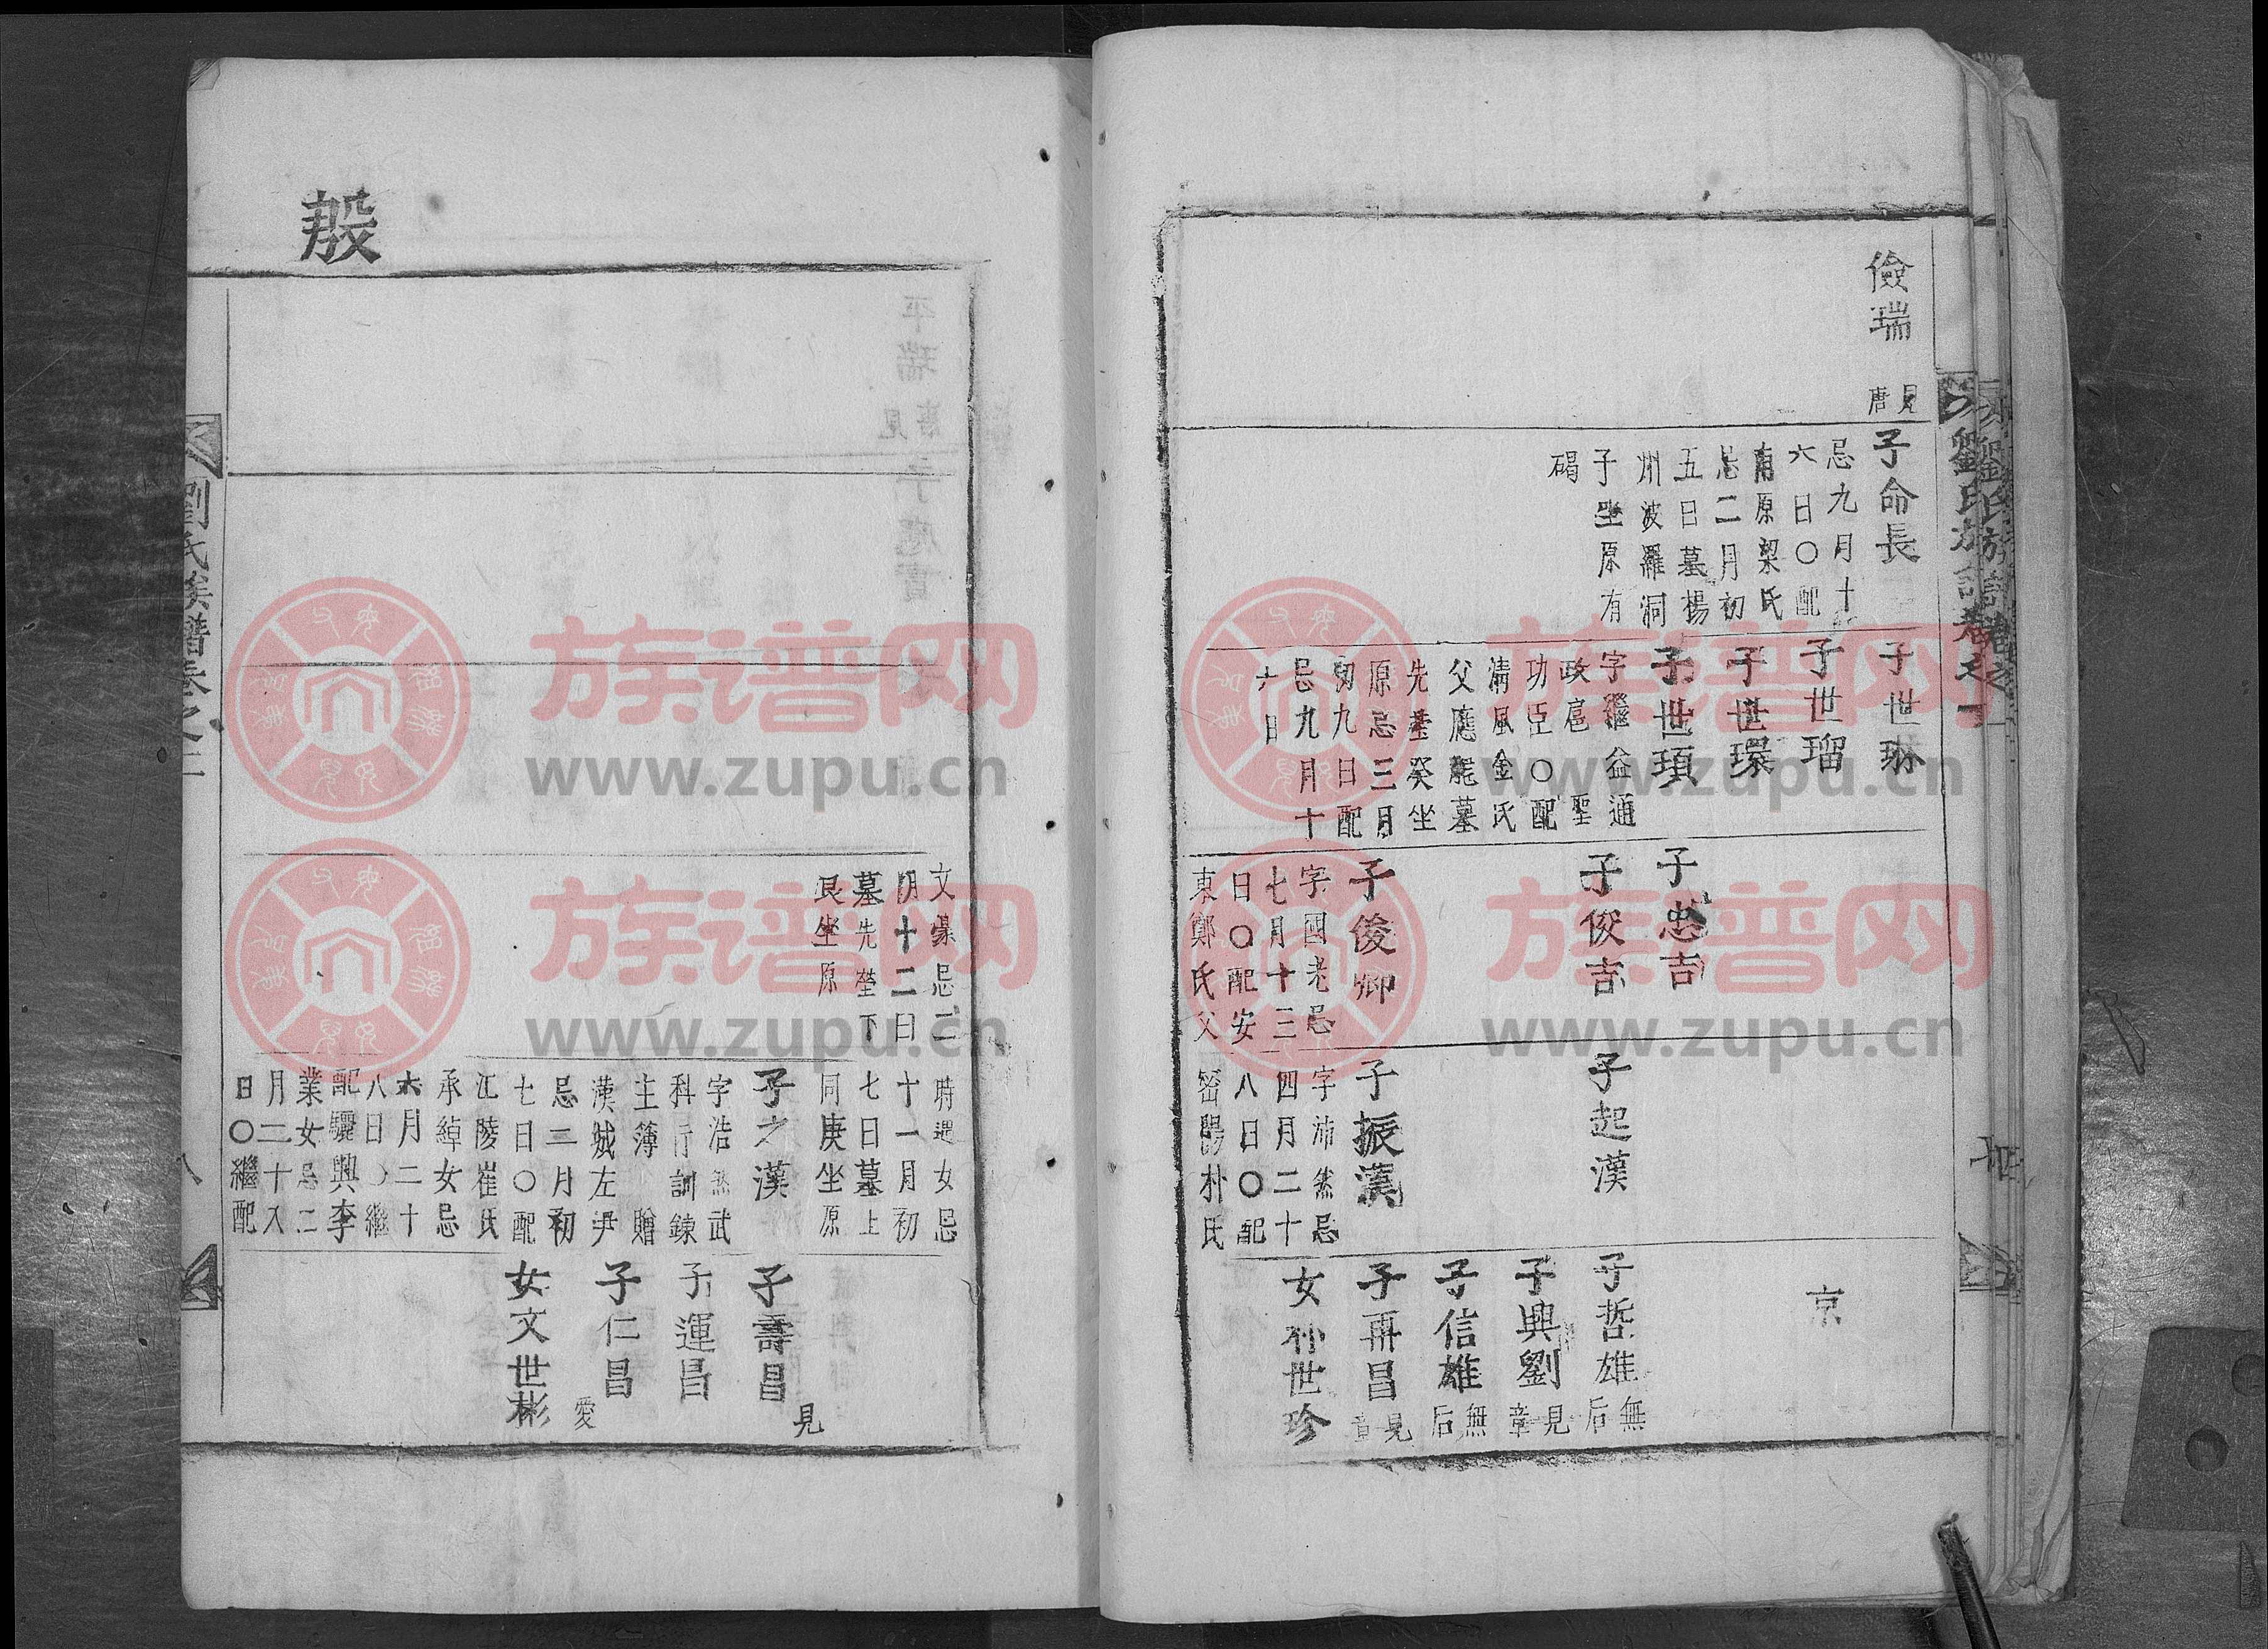 劉氏族譜卷之一
儉瑞
見
唐
子命長
忌九月十
六日〇配
南原梁氏
忌二月初
五日墓楊
州波羅洞
子坐原有
碣
子世琳
子世瑠
子世環
子世頊
字繼益通
政扈聖
功臣〇配
清風金氏
父應龍墓
先塋癸坐
原忌三月
初九日配
忌九月十
六日
子忠吉
子俊吉
子俊卿
字國老忌
七月十三
日〇配安
東鄭氏父
子起漢
子振漢
字沛然忌
四月二十
八日〇配
密陽朴氏
京
子哲雄
無
后
子興劉
見
章
子信雄
無
后
子再昌
見
章
女朴世珍
殷
文豪忌二
月十二日
墓先塋下
艮坐原
時遇女忌
十一月初
七日墓上
同庚坐原
子之漢
字浩然武
科行訓鍊
主簿贈
漢城左尹
忌二月初
七日〇配
江陵崔氏
承綽女忌
六月二十
八日〇繼
配驪興李
業女忌二
月二十八
日〇繼配
子壽昌
見
子運昌
子仁昌
愛
女文世彬
劉氏族譜卷之一
八
族谱网
www.zupu.cn
族谱网
www.zupu.cn
族谱网
www.zupu.cn
族谱网
www.zupu.cn